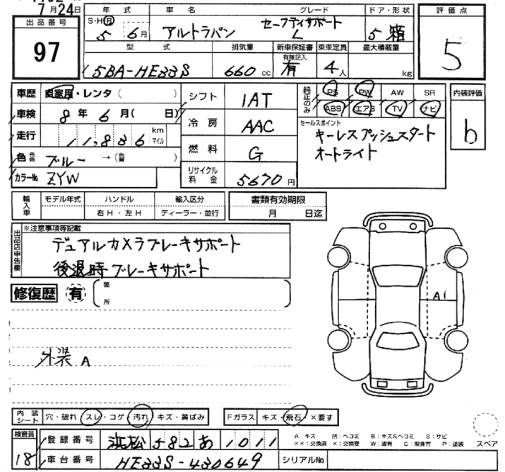 7月24日
出品番号 年式 車名 グレード ドア・形状 評価点
97
S・H・R 5 6月 アルトラパン セーフティサポート L 5 箱
5
型式 排気量 新車保証書 乗車定員 最大積載量
有無記入
5BA-HE33S 660cc 有 4人 kg
車歴 自家用・レンタ( )
シフト 1AT
純正のみ PS PW AW SR
ABS エアB TV ナビ
内装評価
b
車検 8年6月( 日)
冷房 AAC
セールスポイント
キーレスプッシュスタート
オートライト
走行 11,836 km マイル
燃料 G
色 ブルー →( )
カラーNo. ZYW
リサイクル料金 5670円
輸入車 モデル年式 ハンドル 輸入区分 書類有効期限
右H・左H ディーラー・並行 月 日迄
出品店申告欄 ※注意事項等記載
デュアルカメラブレーキサポート
後退時ブレーキサポート
修復歴 有 箇所
A1
外装 A
内装シート 穴・破れ スレ・コゲ 汚れ キズ・黄ばみ Fガラス キズ・飛石・×要す
検査員 18
登録番号 浜松582あ1011
A:キズ
スペア
車台番号 HE33S-430649 シリアルNo.